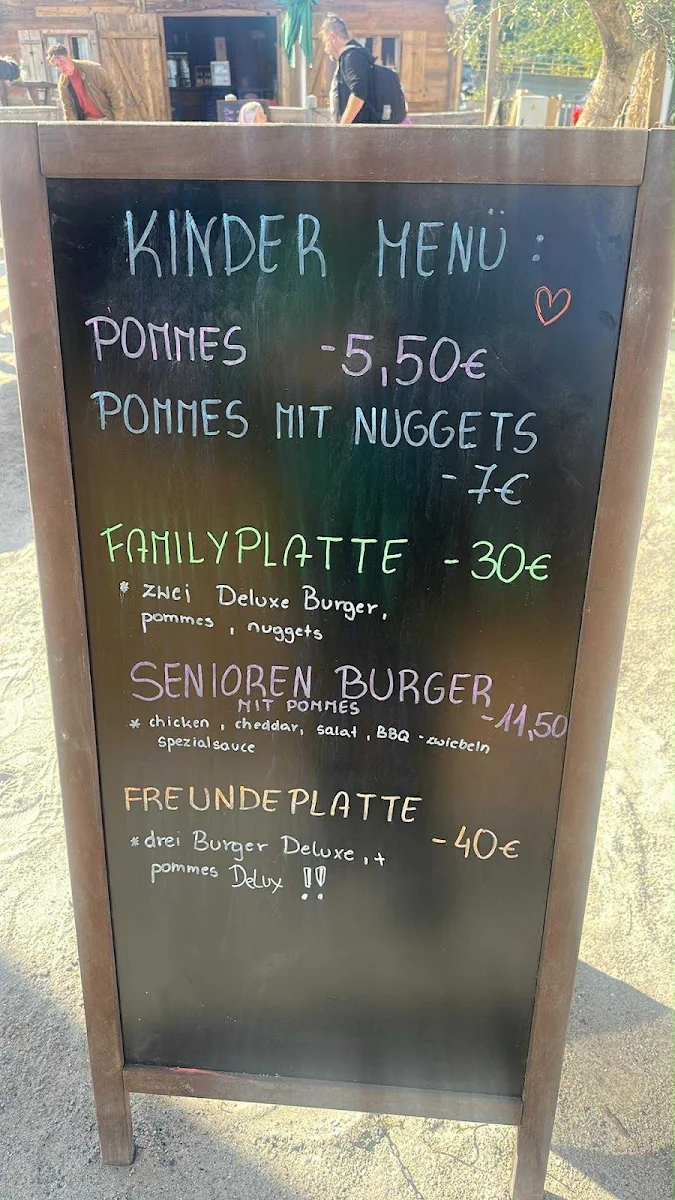 KINDER MENÜ:
POMMES -5,50€
POMMES MIT NUGGETS
-7€
FAMILYPLATTE -30€
* zwei Deluxe Burger,
pommes, nuggets
SENIOREN BURGER
MIT POMMES
-11,50
* chicken, cheddar, salat, BBQ-zwiebeln
spezialsauce
FREUNDEPLATTE
-40€
* drei Burger Deluxe, +
pommes Delux !!